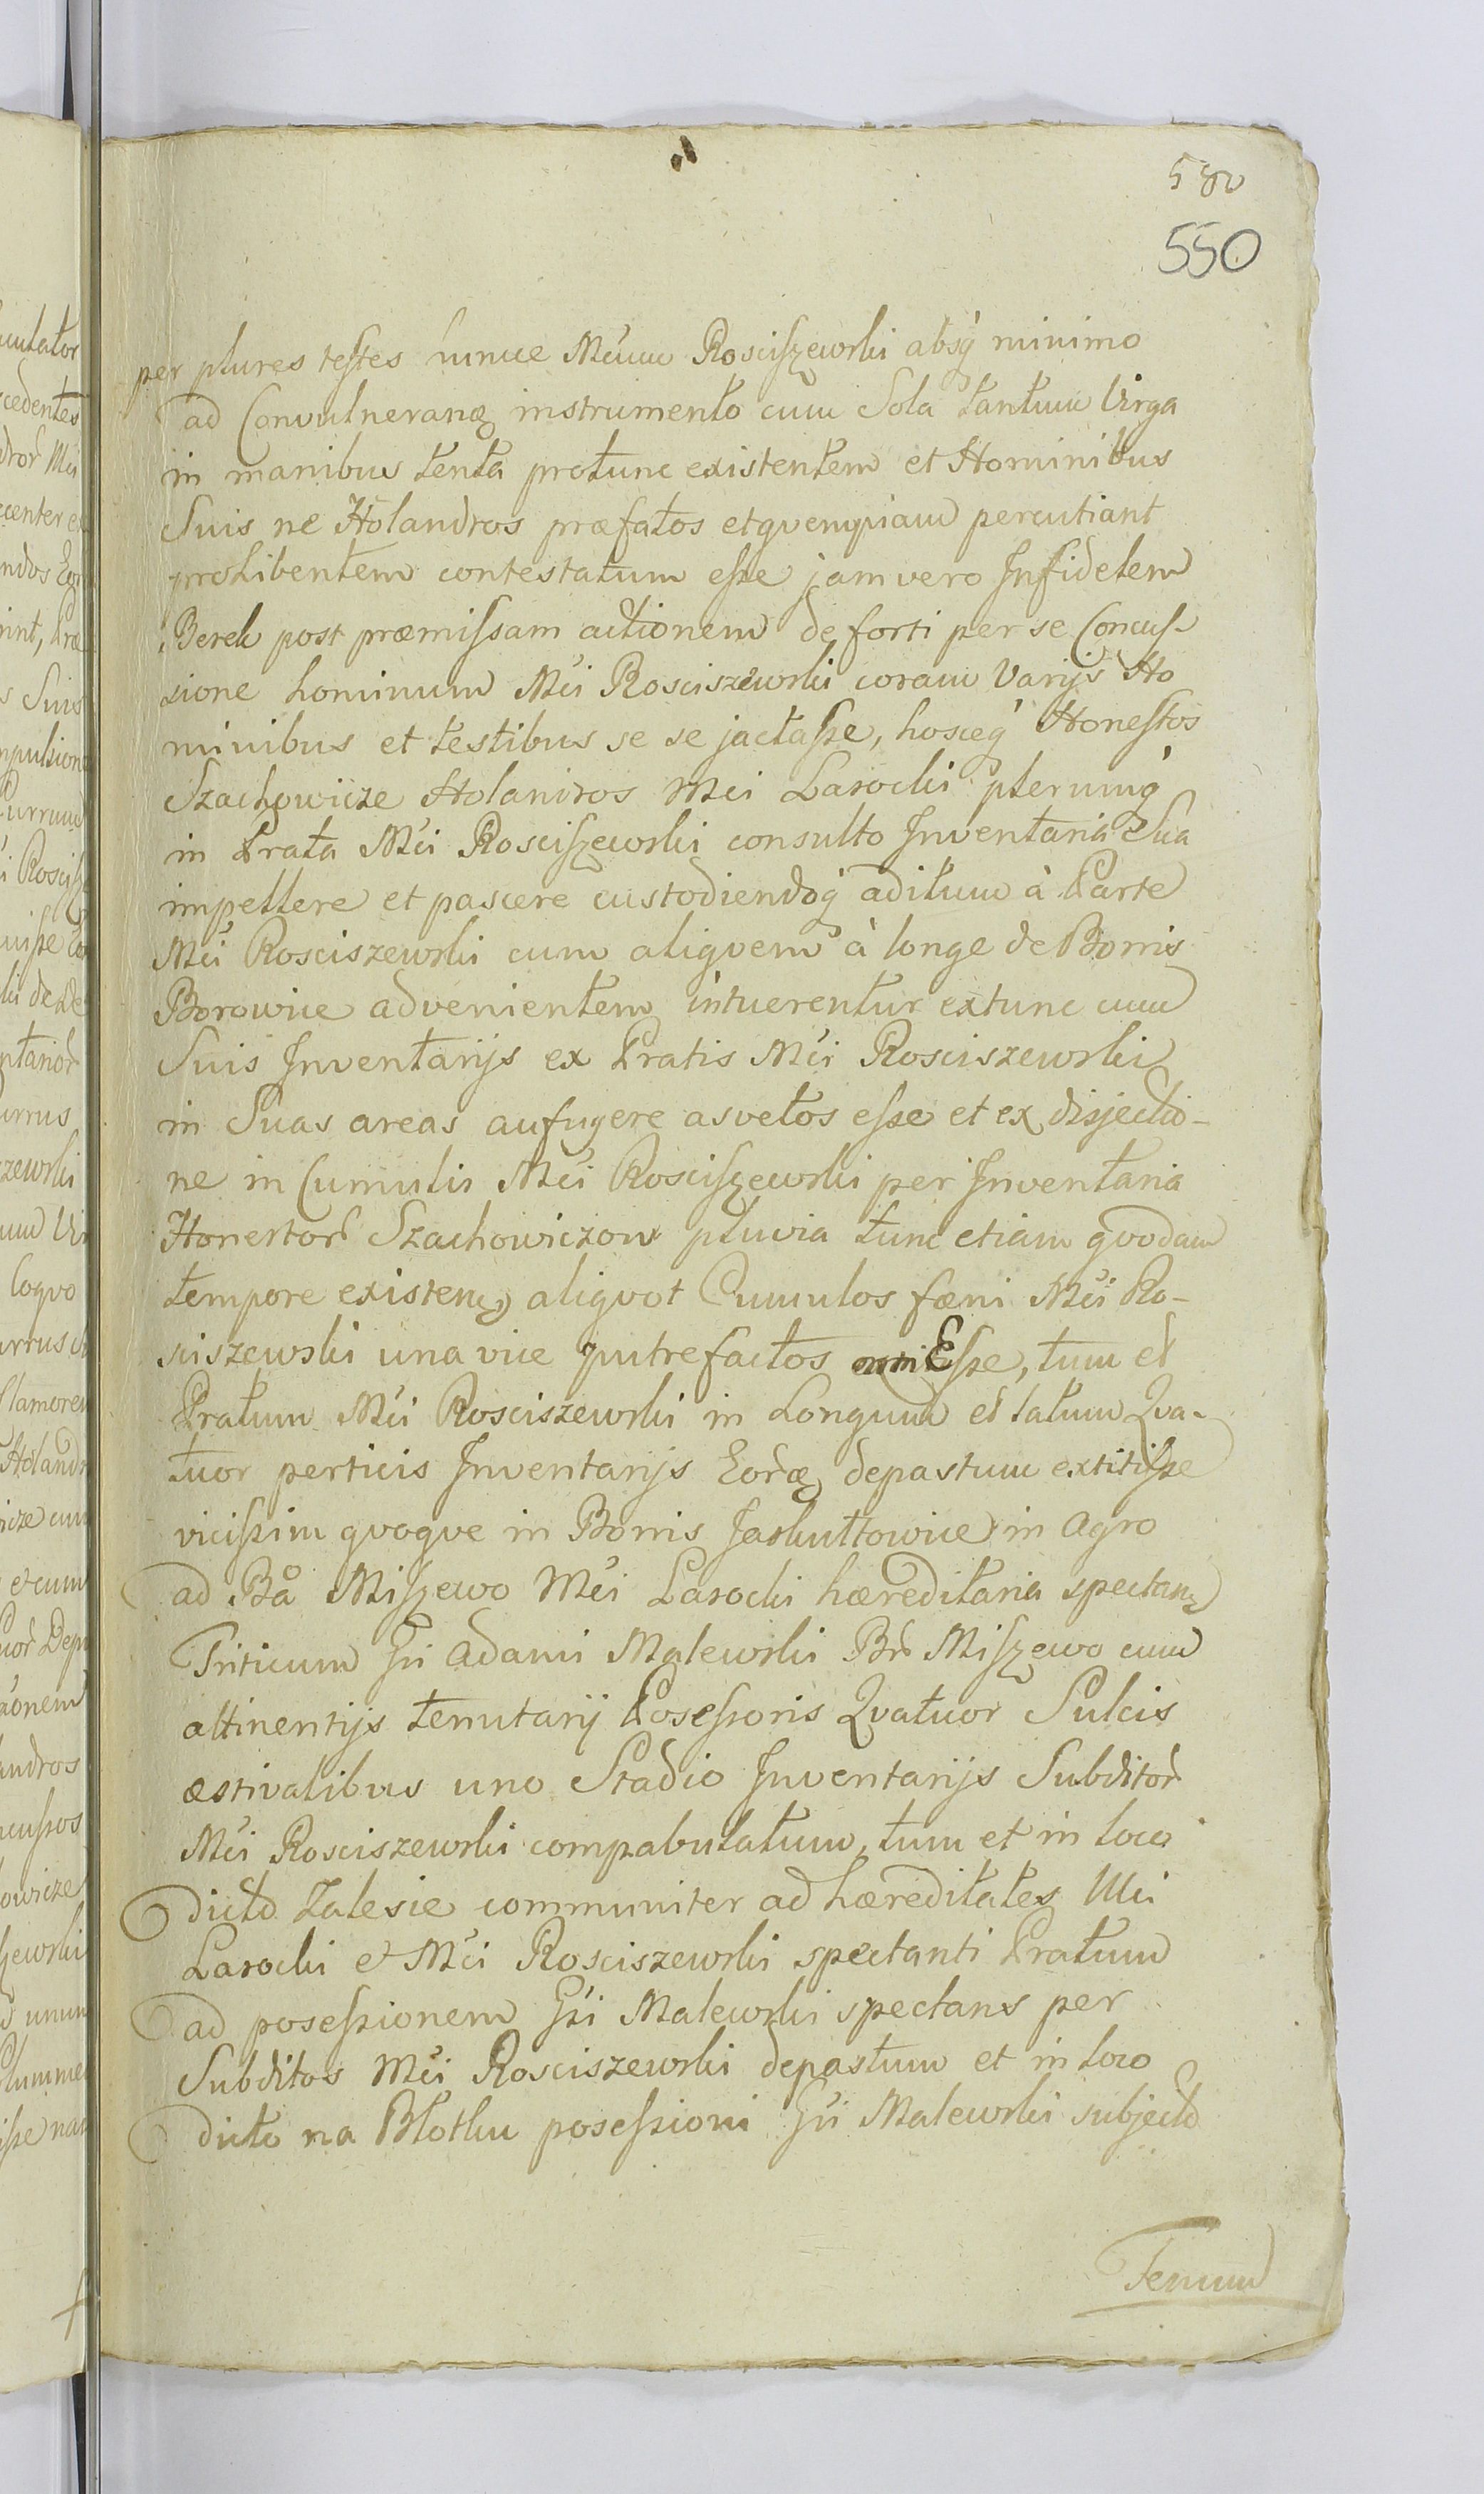 580
550
per plures testes hunce Mcum Rosciszewski absq minimo
ad Convulneranq instrumento cum Sola tantum Virga
in manibus tenta protunc existentem et Hominibus
Suis ne Holandros præfatos et qvempiam percutiant
prohibentem contestatum esse jam vero Infidelem
Berek post præmissam actionem de forti per se Concus-
sione hominum Mci Rosciszewski coram Varijs Ho
minibus et testibus se se jactasse, hosceq Honestos
Szachowicze Holandros Mci Lasocki plerumq
in Prata Mci Rosciszewski consulto Inventaria Sua
impellere et pascere custodiendoq aditum à Parte
Mci Rosciszewski cum aliqvem à longe de Bonis
Borowice advenientem intuerentur extunc cum
Suis Inventarijs ex Pratis Mci Rosciszewski
in Suas areas aufugere asvetos esse et ex disjectio-
ne in Cumulis Mci Rosciszewski per Inventaria
Honestor Szachowiczow pluvia tunc etiam qvodam
tempore existen aliqvot Cumulos fæni Mci Ro-
sciszewski una vice putrefactos Esse, tum et
Pratum Mci Rosciszewski in Longum et latum Qva-
tuor perticis Inventarijs Eorq depastum extitisse
vicissim qvoqve in Bonis Jaskułtowice in agro
ad Ba Miszewo Mci Lasocki hæreditaria spectan
Triticum Gsi Adami Malewski Br Miszewo cum
attinentijs tenutarij Posessoris Qvatuor Sulcis
æstivalibus uno Stadio Inventarijs Subditor
Mci Rosciszewski compabulatum, tum et in loco
dicto Zalesie communiter ad hæreditates Mci
Lasocki et Mci Rosciszewski spectanti Pratum
ad posessionem Gsi Malewski spectans per
Subditos Mci Rosciszewski depastum et in loco
dicto na Błotku posessioni Gsi Malewski subjecto
Fenum